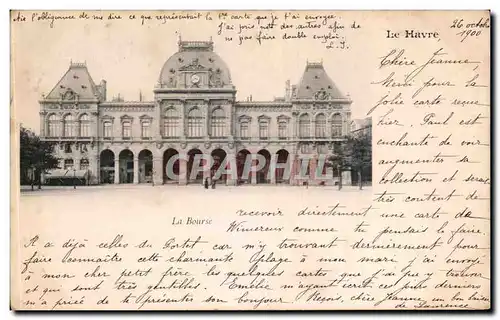 Aie l'obligeance de me dire ce que représentait la 1ère carte que je t'ai envoyée.
J'ai pris note des autres afin de
ne pas faire double emploi.
Le Havre
26 octobre
1900
Chère Jeanne,
Merci pour la
jolie carte reçue
hier. Paul est
enchanté de voir
augmenter sa
collection et serait
très content de
CPARAMA
La Bourse
recevoir directement une carte de
Wimereux comme tu pensais le faire.
Il a déjà celles du Portel car m'y trouvant dernièrement pour
faire connaître cette charmante plage à mon mari j'ai envoyé
à mon cher petit frère les quelques cartes que j'ai pu y trouver
et qui sont très gentilles. Emélie m'ayant écrit ces jours derniers
m'a prié de te présenter son bonjour. Reçois, chère Jeanne, un bon baiser
de Laurence